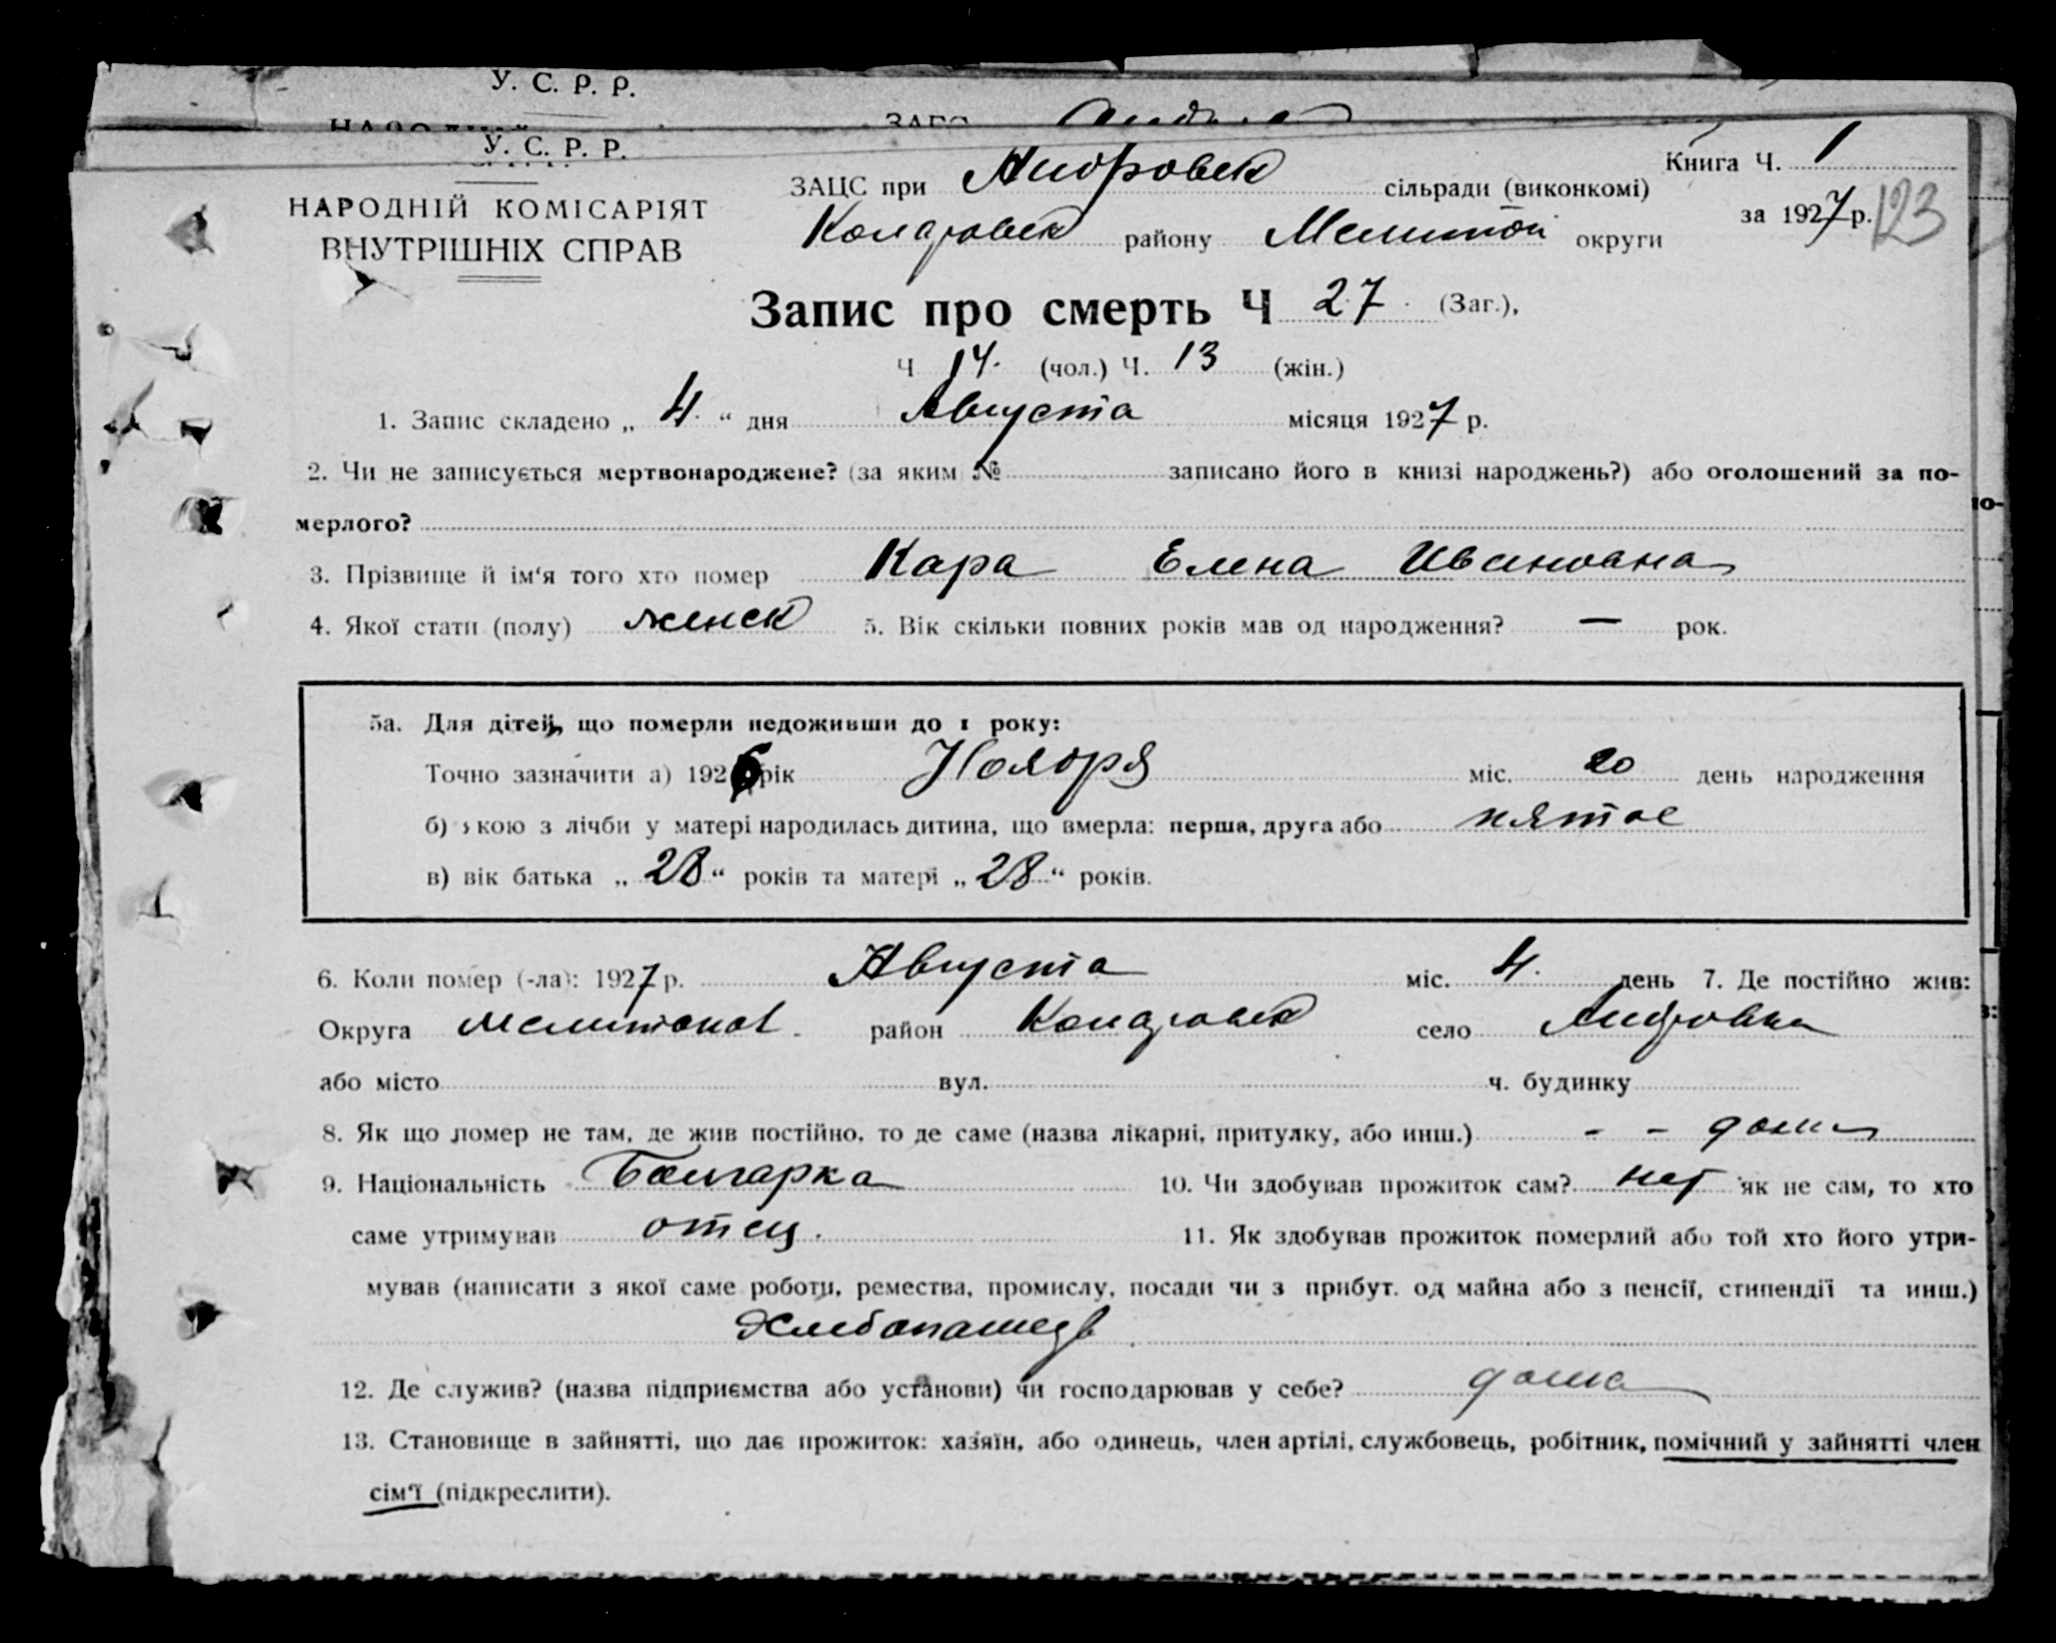 У. С. Р. Р.
У. С. Р. Р.
НАРОДНІЙ КОМІСАРІЯТ
ВНУТРІШНІХ СПРАВ
Книга Ч. 1
ЗАЦС при Андровск сільради (виконкомі)
за 1927 р. 123
району Мелитоп округи
Запис про смерть Ч 27 (Заг.),
Ч 14. (чол.) Ч. 13 (жін.)
1. Запис складено „ 4. “ дня Августа місяця 1927 р.
2. Чи не записується мертвонароджене? (за яким № записано його в книзі народжень?) або оголошений за по-
мерлого?
3. Прізвище й ім‘я того хто помер Кара Елена Ивановна
4. Якої стати (полу) женск 5. Вік скільки повних років мав од народження? — рок.
5а. Для дітей, що померли недоживши до 1 року:
Точно зазначити а) 1926 рік Ноября міс. 20 день народження
б) якою з лічби у матері народилась дитина, що вмерла: перша, друга або пятое
в) вік батька „ 28 “ років та матері „ 28 “ років.
6. Коли помер (-ла): 1927 р. Августа міс. 4. день 7. Де постійно жив:
Округа район село Андровка
або місто вул. ч. будинку
8. Як що помер не там, де жив постійно, то де саме (назва лікарні, притулку, або инш.) - - дома
9. Національність Болгарка 10. Чи здобував прожиток сам? нет як не сам, то хто
саме утримував отец. 11. Як здобував прожиток померлий або той хто його утри-
мував (написати з якої саме роботи, ремества, промислу, посади чи з прибут. од майна або з пенсії, стипендії та инш.)
Хлебопашец
12. Де служив? (назва підприємства або установи) чи господарював у себе? дома
13. Становище в зайнятті, що дає прожиток: хазяїн, або одинець, член артілі, службовець, робітник, помічний у зайнятті член
сім‘ї (підкреслити).